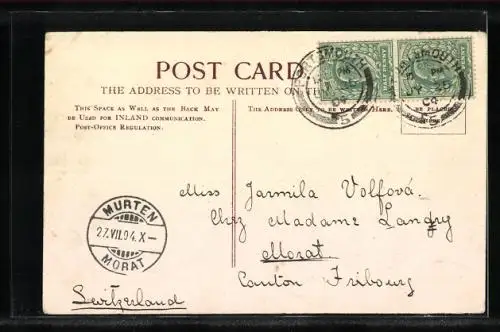 POST CARD
THE ADDRESS TO BE WRITTEN ON TH
THIS SPACE AS WELL AS THE BACK MAY
BE USED FOR INLAND COMMUNICATION.
POST-OFFICE REGULATION.
THE ADDRESS ONLY TO BE WRITTEN HERE.
BE PLACED
PORTSMOUTH
PORTSMOUTH
MURTEN
27.VII.04.X-
MORAT
Miss Jarmila Volfová.
Chez Madame Landry
Morat.
Canton Fribourg
Switzerland